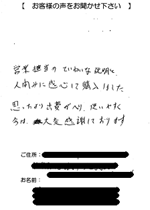 【 お客様の声をお聞かせ下さい 】
営業担当のていねいな説明と
人間みに感心して購入しました
思ったより出費がへり、使いやすく
今は、大変感謝しております
ご住所：
お名前：